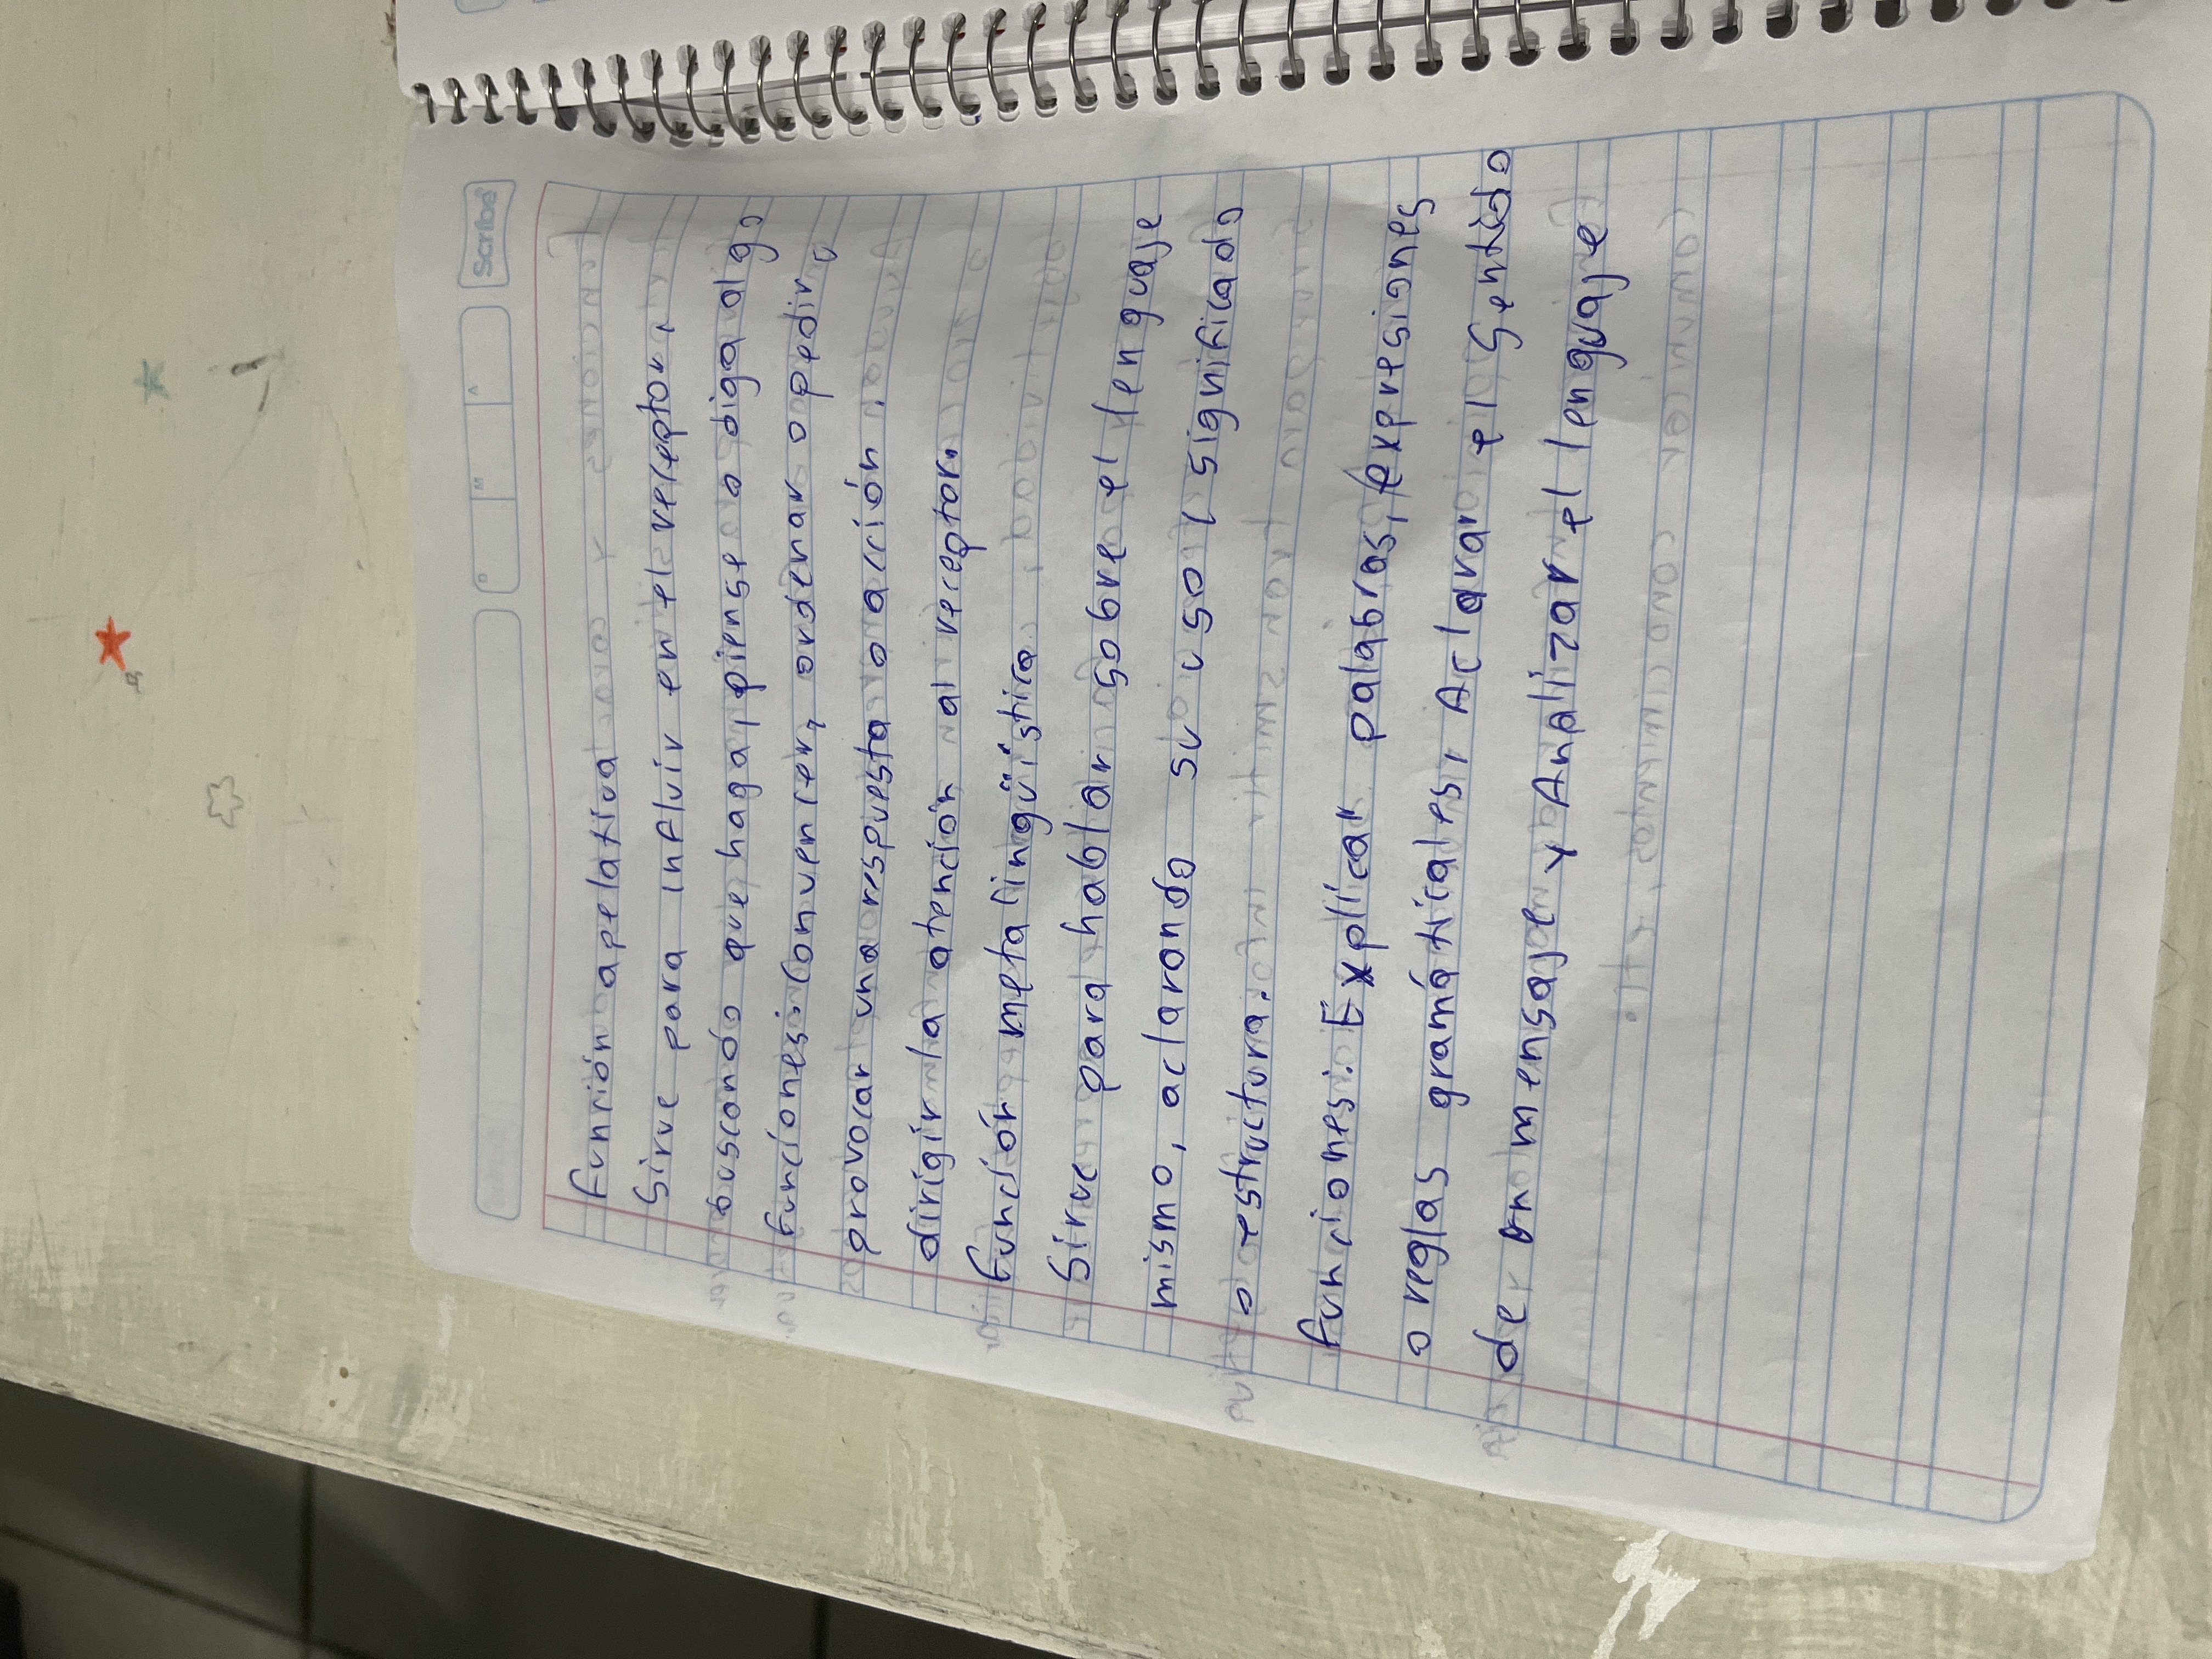 Scribe
Función apelativa
Sirve para influir en el receptor,
buscando que haga, piense o diga algo
funciones: Convencer, ordenar o pedir,
provocar una respuesta o acción.
dirigir la atención al receptor.
función metalingüística
Sirve para hablar sobre el lenguaje
mismo, aclarando su uso, significado
o estructura.
funciones: Explicar palabras, expresiones
o reglas gramáticales, Aclarar el sentido
de un mensaje y Analizar el lenguaje